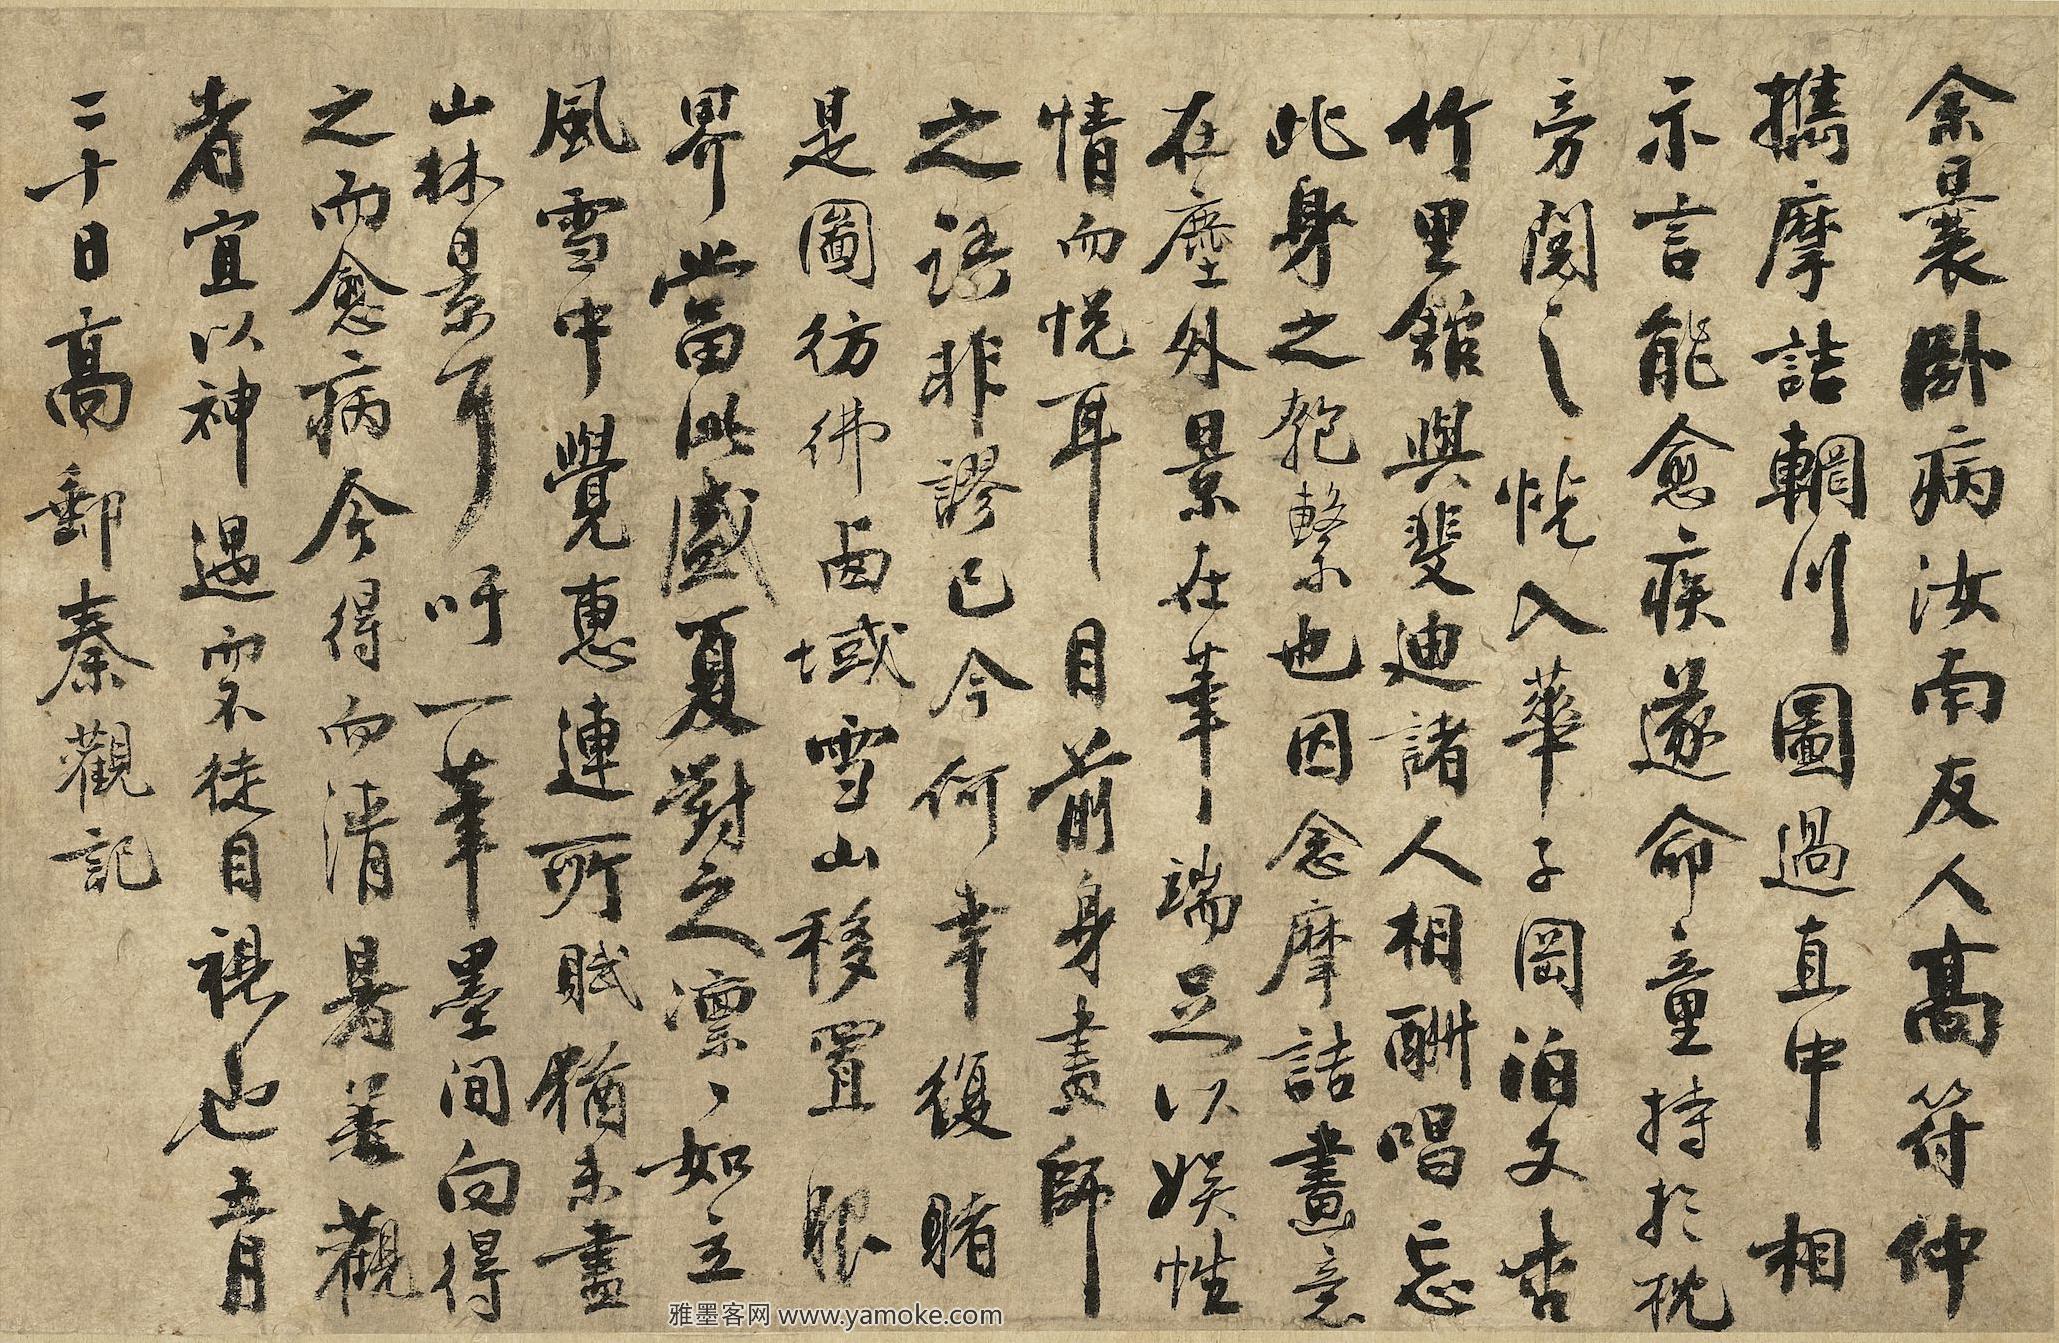 余曩卧病汝南友人高符仲
攜摩詰輞川圖過直中相
示言能愈疾遂命童持於枕
旁閱之恍入華子岡泊文杏
竹里館與斐迪諸人相酬唱忘
此身之匏繫也因念摩詰畫意
在塵外景在筆端足以娱性
情而悦耳目前身畫師
之語非謬已今何幸復睹
是圖彷彿西域雪山移置眼
界當此盛夏對之凛凛如立
風雪中覺惠連所賦猶未盡
山林景耳吁一筆墨間向得
之而愈病今得而清暑善觀
者宜以神遇而不徒目視也五月
二十日高郵秦觀記
雅墨客网 www.yamoke.com